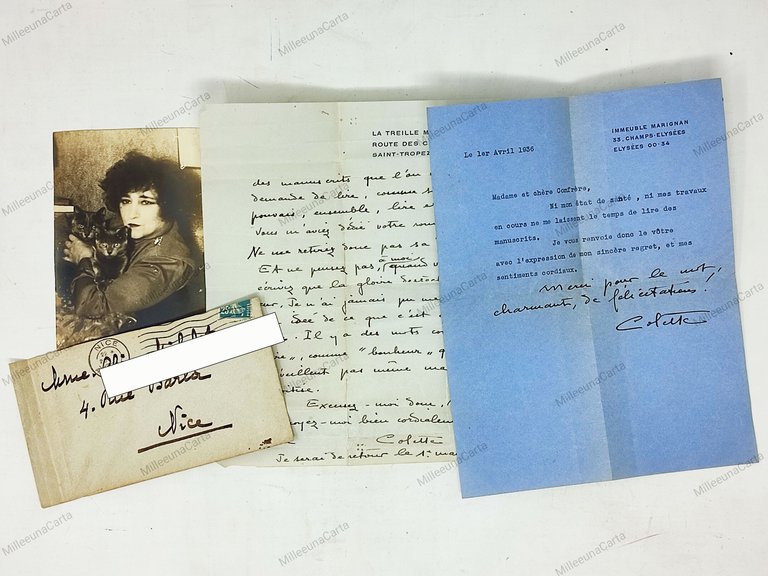 LA TREILLE M
ROUTE DES C
SAINT-TROPEZ
des manuscrits que l'on
demande de lire, comme s
pouvais, ensemble, lire e
vous m'aviez dédié votre rom
Ne me retirez donc pas sa
Et ne pensez pas, à moi, quand
écrivez que la gloire
sur. Je n'ai jamais pu me
idée de ce que c'est
. Il y a des mots co
", comme "bonheur" q
veillent pas même ma
Excusez-moi donc,
oyez-moi bien cordialem
Colette
Je serai de retour le 1er ma
IMMEUBLE MARIGNAN
33, CHAMPS-ELYSÉES
ELYSÉES 00-34
Le 1er Avril 1936
Madame et chère Confrère,
Ni mon état de santé, ni mes travaux
en cours ne me laissent le temps de lire des
manuscrits. Je vous renvoie donc le vôtre
avec l'expression de mon sincère regret, et mes
sentiments cordiaux.
Merci pour le mot,
charmant, de félicitations.
Colette
NICE
Mme
4. Rue Barla
Nice
MilleeunaCarta